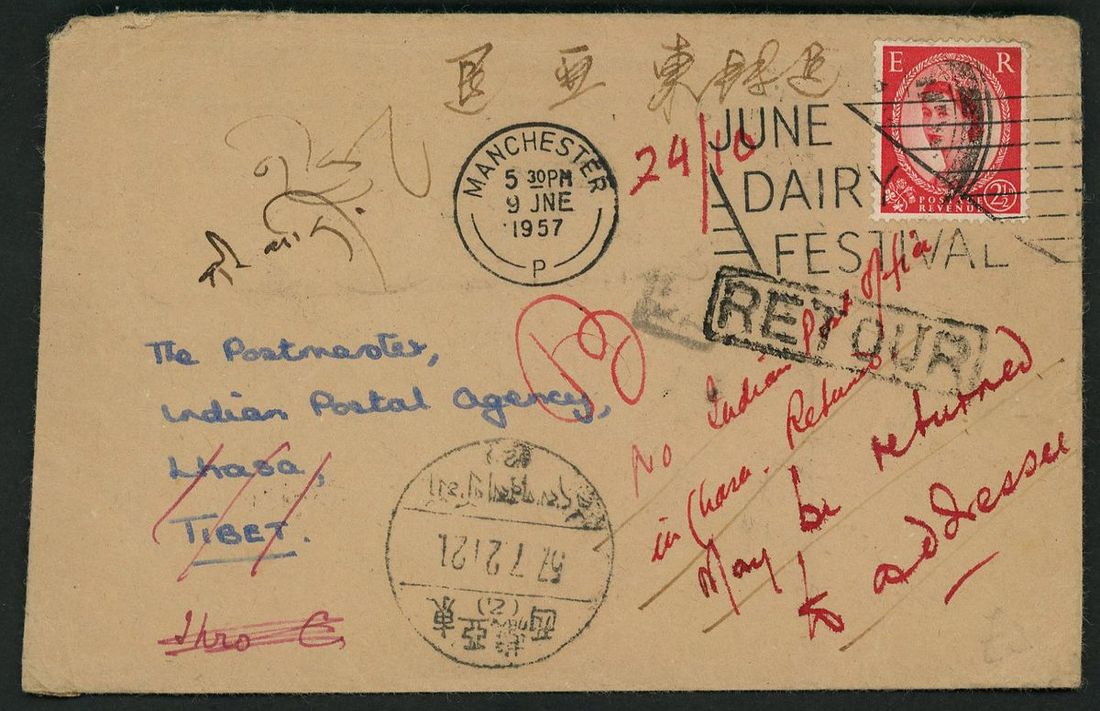 E R
POSTAGE
REVENUE
2½
退 亞東
MANCHESTER
5 30PM
9 JNE
1957
P
24/10
JUNE
DAIRY
FESTIVAL
RETOUR
The Postmaster,
Indian Postal Agency,
Lhasa,
TIBET.
Thro C.
No Indian Post Office
in Lhasa. Return
May be returned
to addressee
57.7.21.21
西藏
亞東
(2)